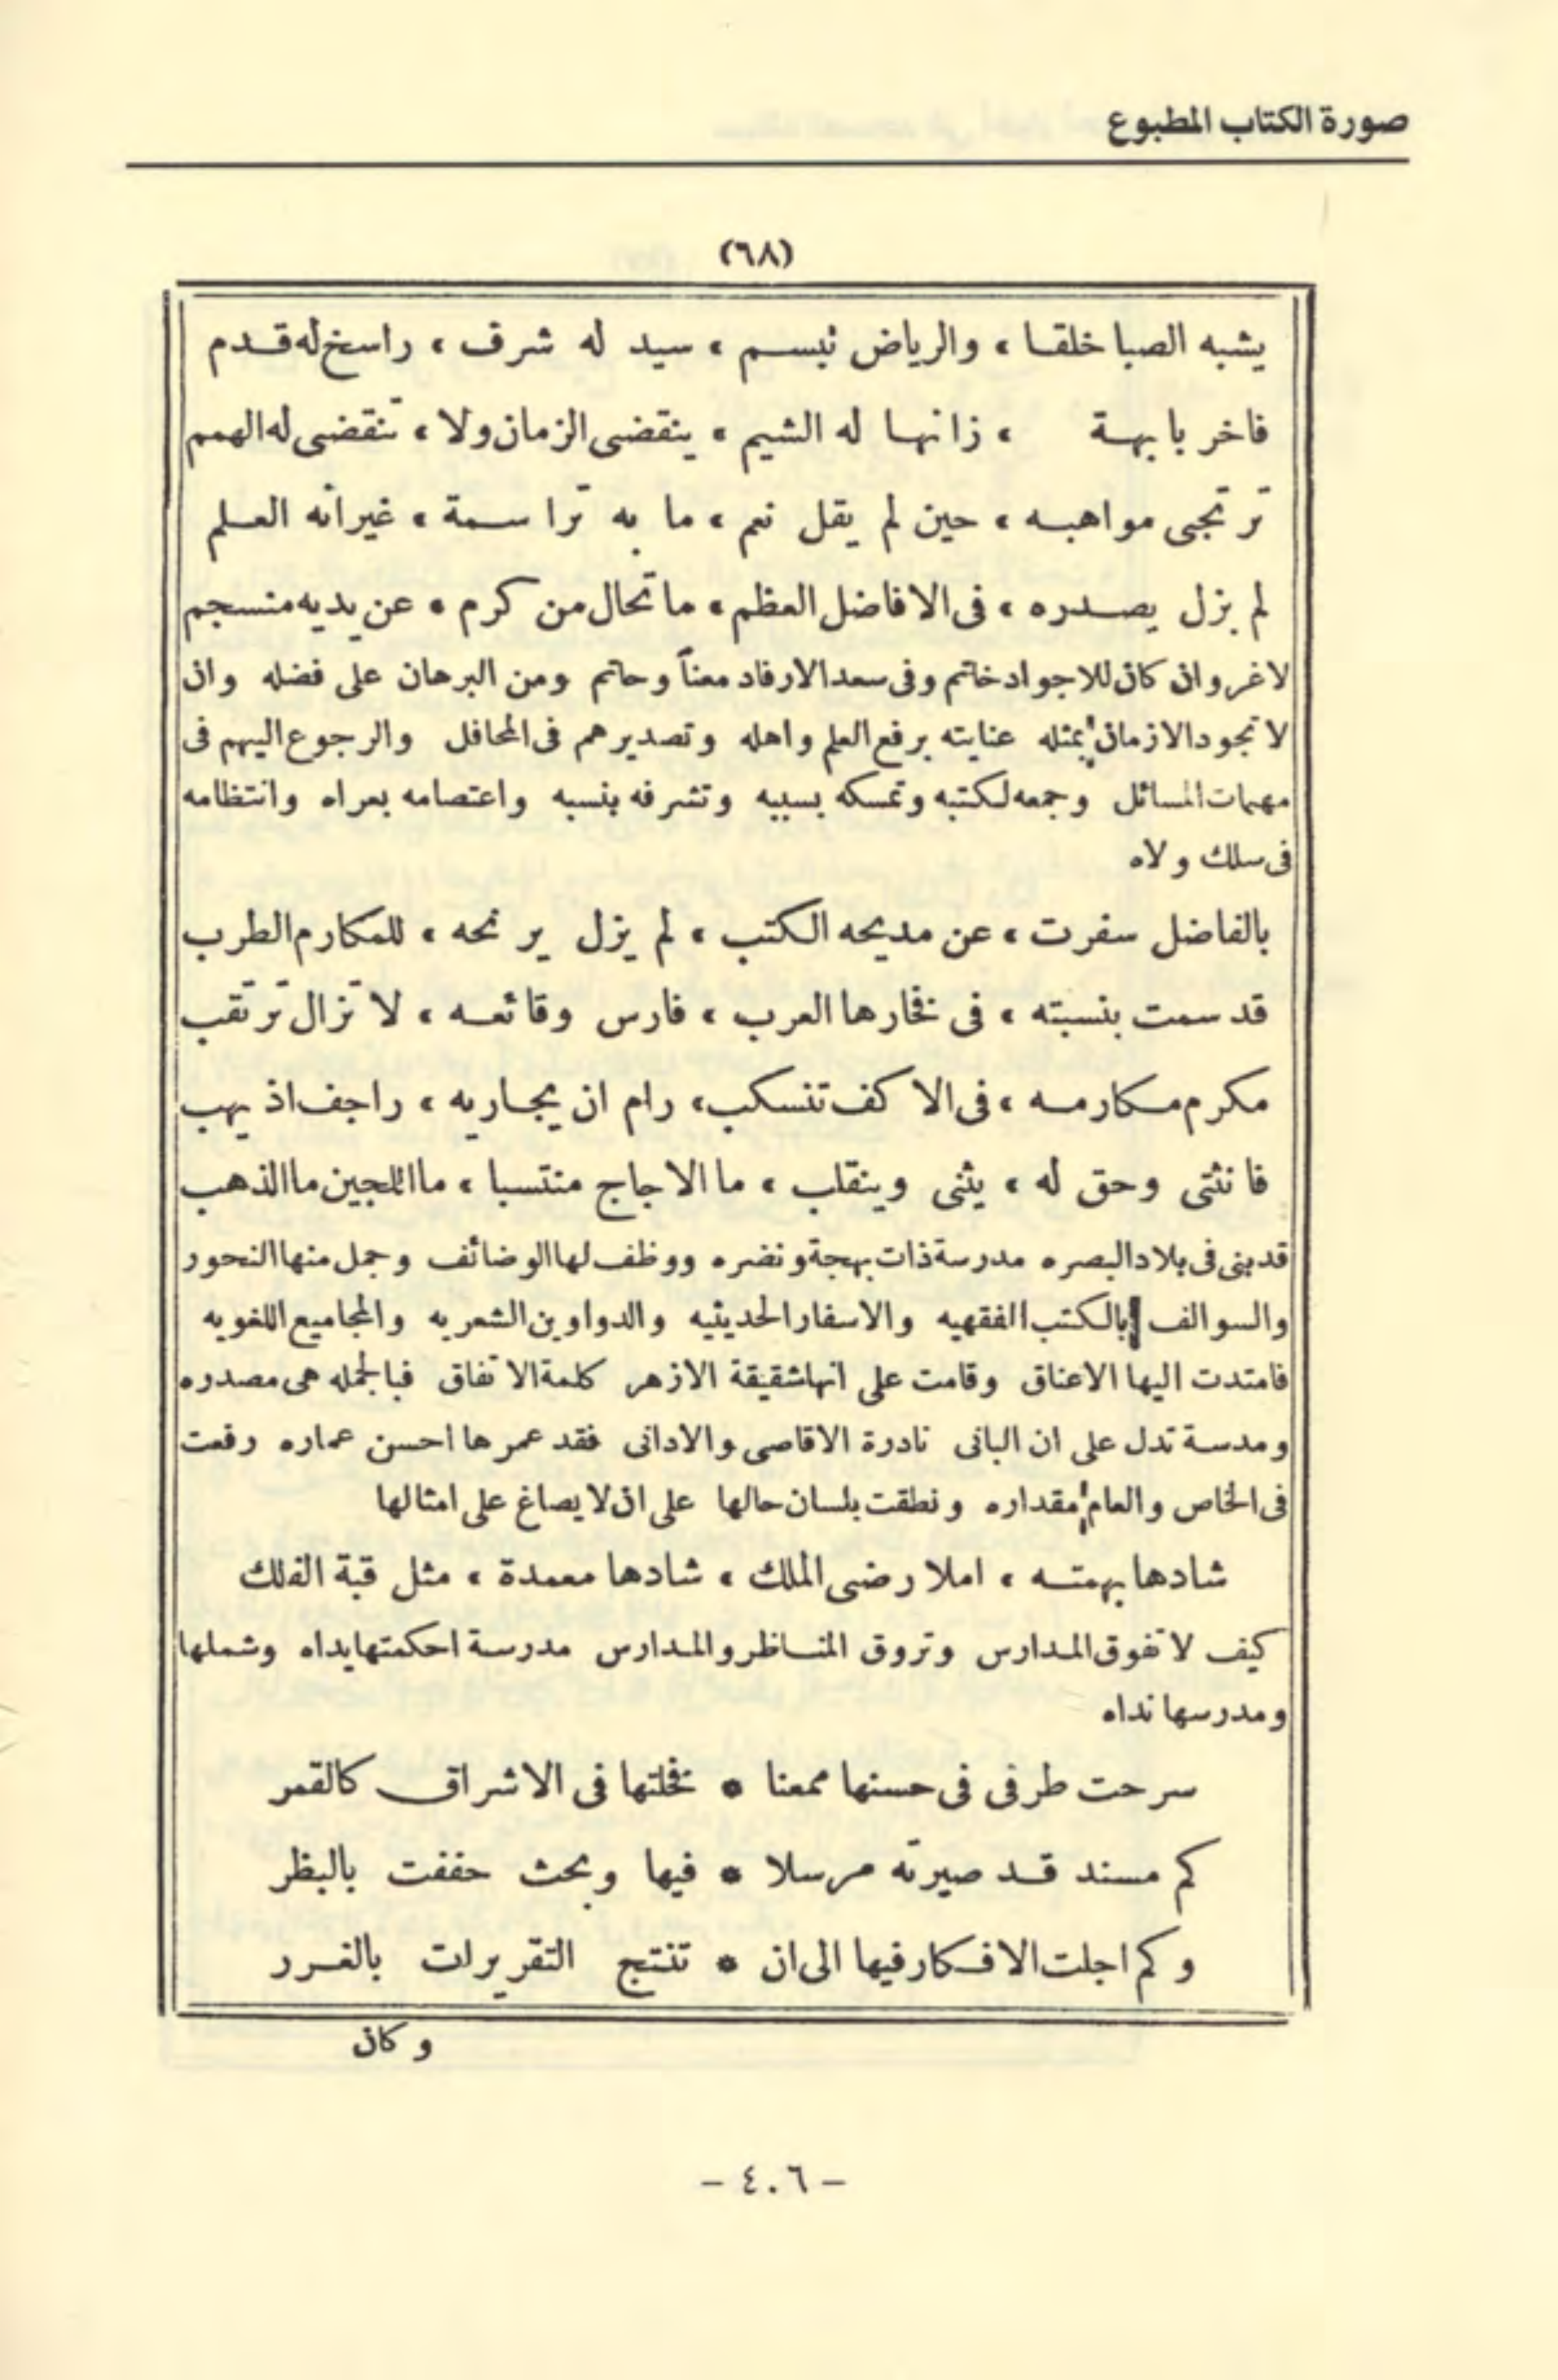 صورة الكتاب المطبوع
(٦٨)
يشبه الصبا خلقا ، والرياض نبسم ، سيد له شرف ، راسخ له قدم
فاخر بابهة ، زانها له الشيم ، ينقضى الزمان ولا ، تنقضى له الهمم
ترتجى مواهبه ، حين لم يقل نعم ، ما به ترا سمة ، غير انه العلم
لم يزل يصدره ، فى الافاضل العظم ، ما تحال من كرم ، عن يديه منسجم
لاغر وان كان للاجواد خاتم وفى سعد الارفاد معناً وحاتم ومن البرهان على فضله وان
لا تجود الازمان بمثله عنايته برفع العلم واهله وتصديرهم فى المحافل والرجوع اليهم فى
مهمات المسائل وجمعه لكتبه وتمسكه بسببه وتشرفه بنسبه واعتصامه بعراه وانتظامه
فى سلك ولاه
بالفاضل سفرت ، عن مديحه الكتب ، لم يزل يرنحه ، للمكارم الطرب
قد سمت بنسبته ، فى فخارها العرب ، فارس وقائعه ، لا تزال ترتقب
مكرم مكارمه ، فى الاكف تنسكب ، رام ان يجاريه ، راجف اذ يهب
فانثنى وحق له ، يثنى وينقلب ، ما الاجاج منتسبا ، ما اللجين ما الذهب
قد بنى فى بلاد البصره مدرسة ذات بهجة ونضره ووظف لها الوضائف وجمل منها النحور
والسوالف بالكتب الفقهيه والاسفار الحديثيه والدواوين الشعريه والمجاميع اللغويه
فامتدت اليها الاعناق وقامت على انها شقيقة الازهر كلمة الاتفاق فبالجمله هى مصدره
ومدسة تدل على ان البانى نادرة الاقاصى والادانى فقد عمرها احسن عماره رفعت
فى الخاص والعام مقداره ونطقت بلسان حالها على ان لا يصاغ على امثالها
شادها بهمته ، املا رضى الملك ، شادها معمدة ، مثل قبة الفلك
كيف لا تفوق المدارس وتروق المناظر والمدارس مدرسة احكمتها يداه وشملها
ومدرسها نداه
سرحت طرفى فى حسنها ممعنا * فخلتها فى الاشراق كالقمر
كم مسند قد صيرته مرسلا * فيها وبحث حففت بالبظر
وكم اجلت الافكار فيها الى ان * تنتج التقريرات بالغرر
وكان
- ٤٠٦ -